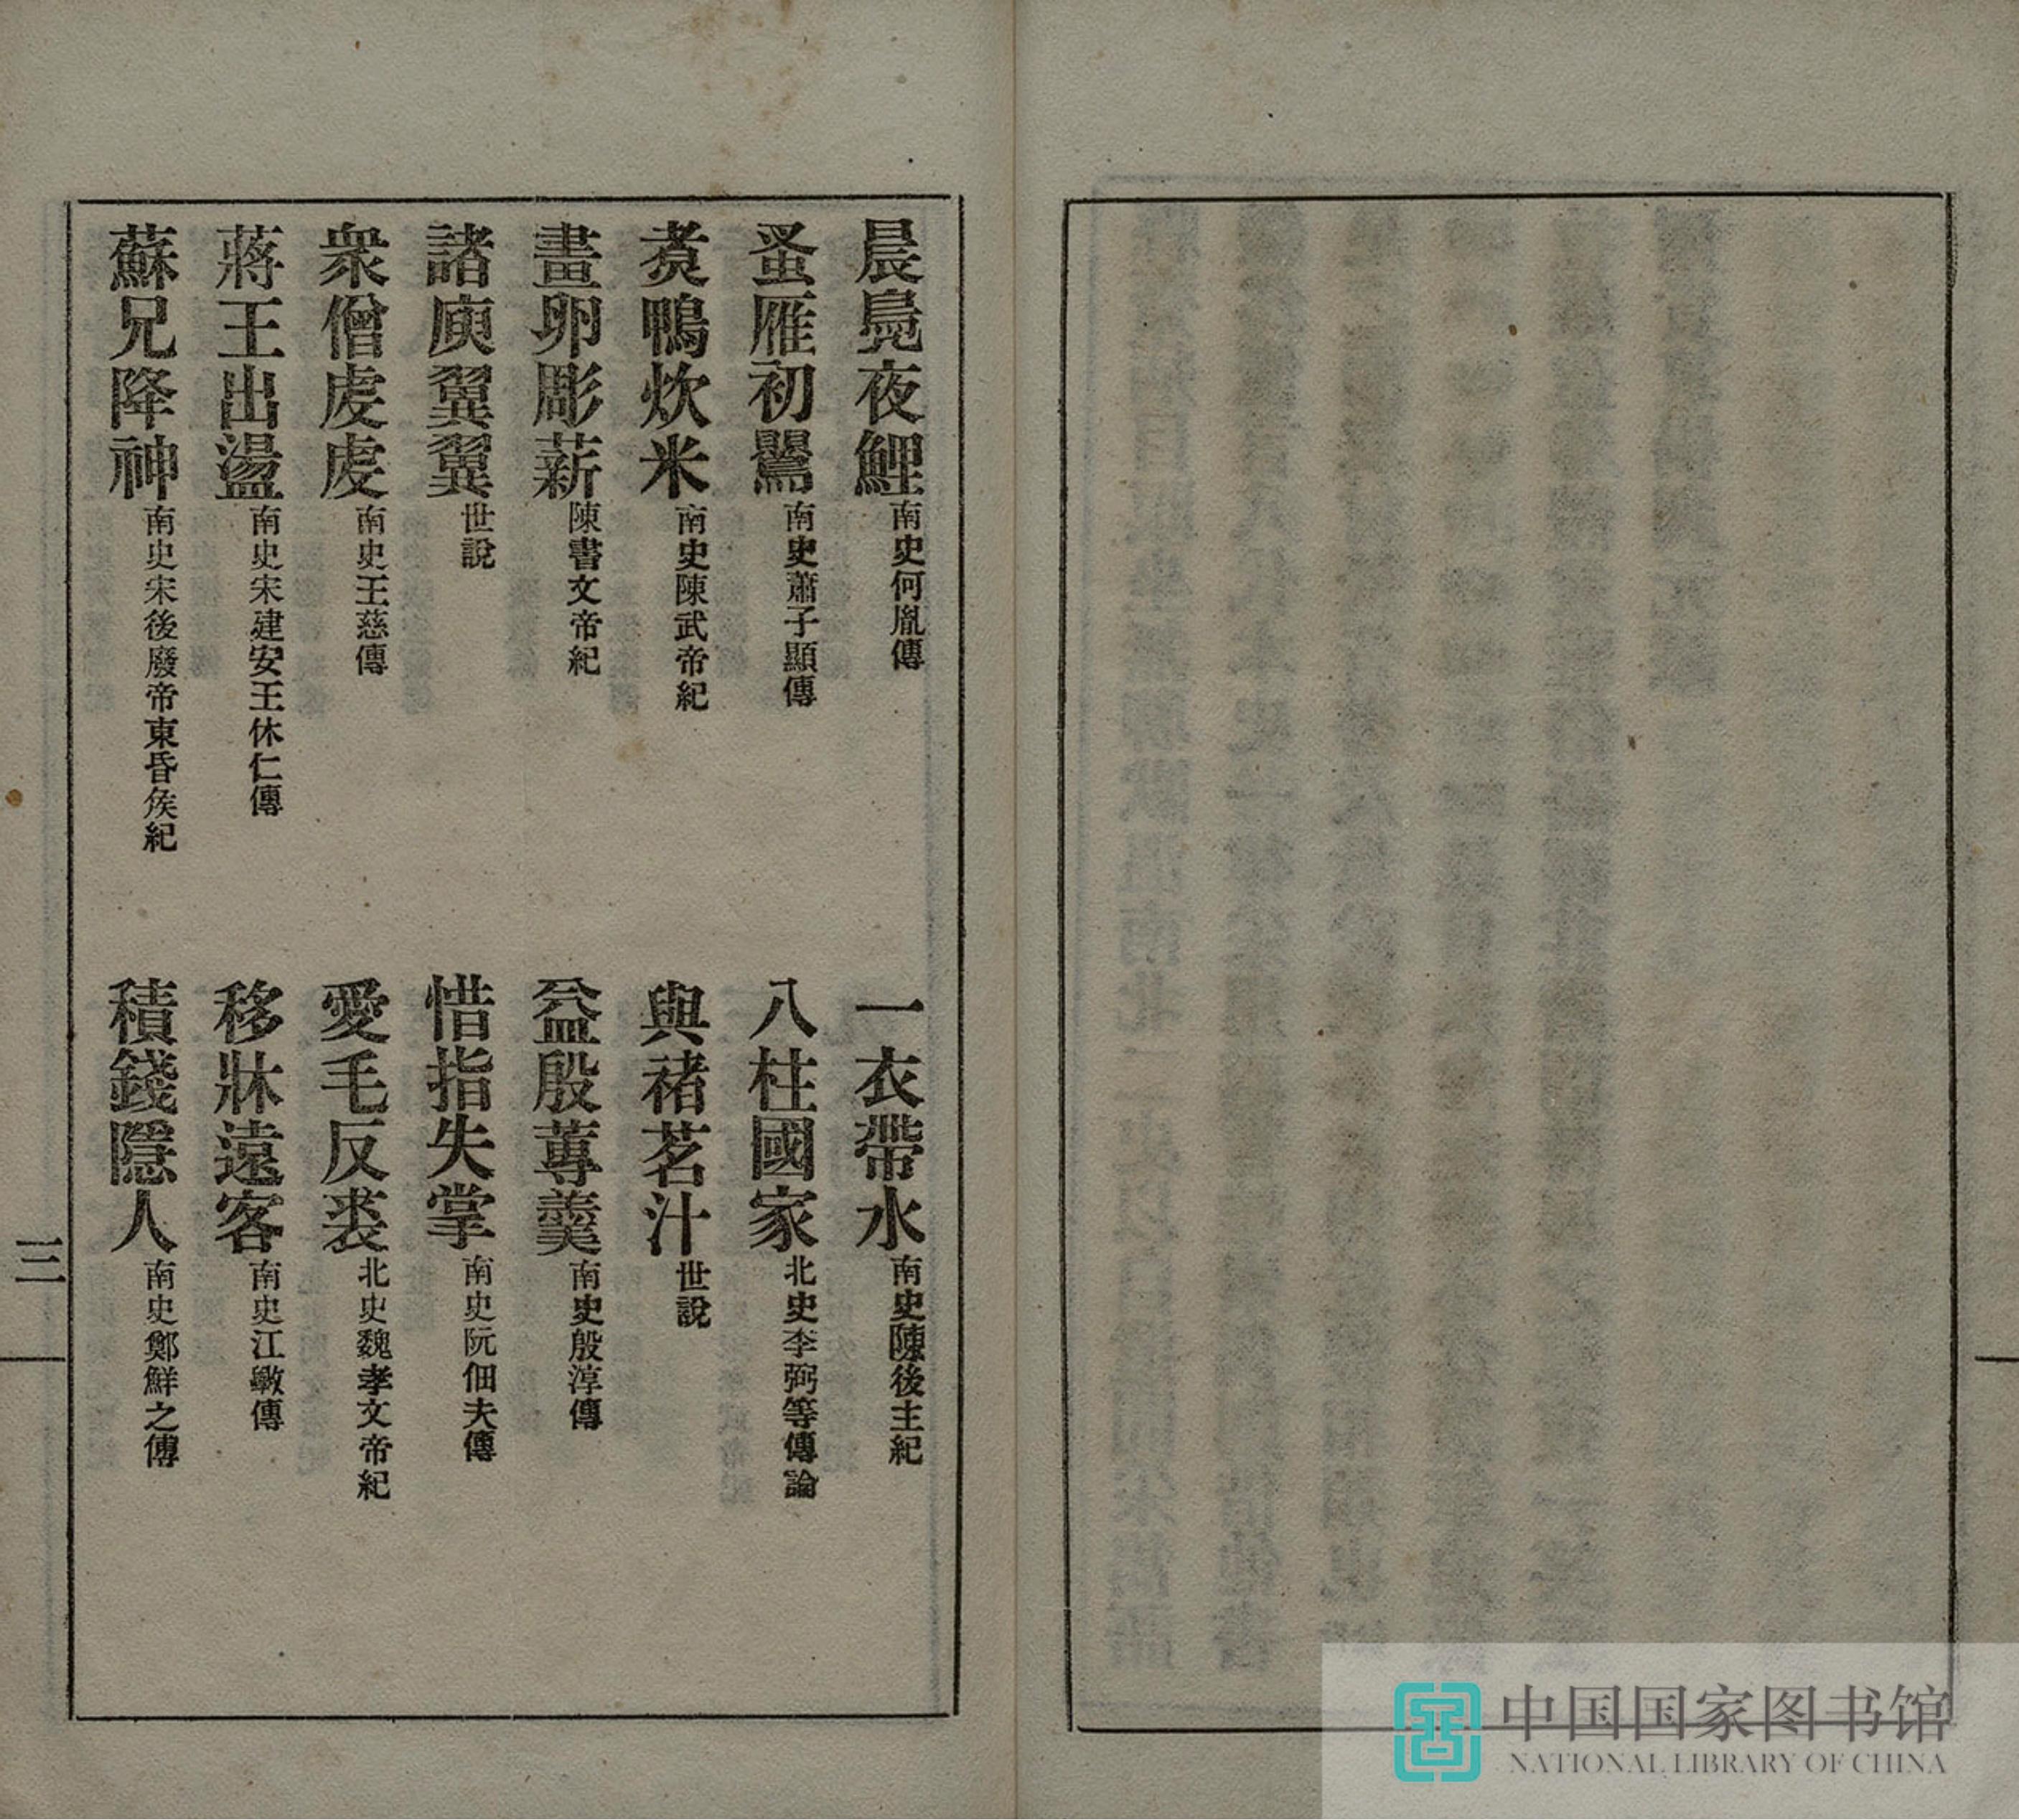 晨鳧夜鯉南史何胤傳　一衣帶水南史陳後主紀
蚤雁初鸎南史蕭子顯傳　八柱國家北史李弼等傳論
煑鴨炊米南史陳武帝紀　與褚茗汁世說
畫卵彫薪陳書文帝紀　益殷蓴羹南史殷淳傳
諸庾翼翼世說　惜指失掌南史阮佃夫傳
衆僧虔虔南史王慈傳　愛毛反裘北史魏孝文帝紀
蔣王出盪南史宋建安王休仁傳　移牀遠客南史江斆傳
蘇兄降神南史宋後廢帝東昏矦紀　積錢隱人南史鄭鮮之傳
三
中国国家图书馆
NATIONAL LIBRARY OF CHINA